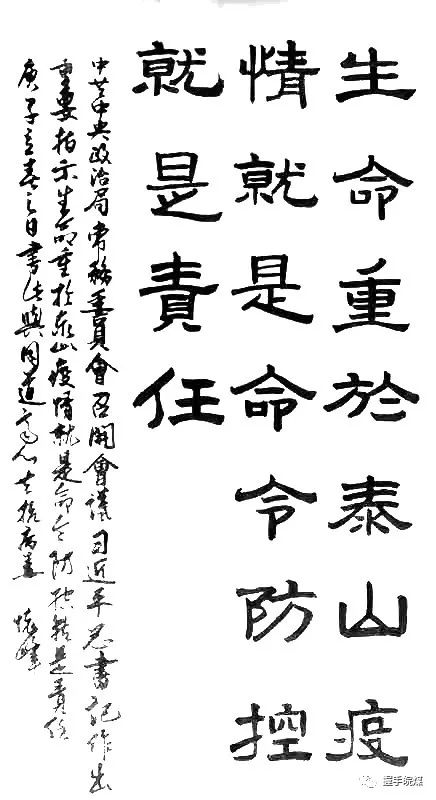 生命重於泰山疫
情就是命令防控
就是責任
中共中央政治局常務委員會召開會議习近平总書記作出
重要指示生命重於泰山疫情就是命令防控就是責任
庚子立春之日書此與同道齊心共抗病毒
握手皖煤